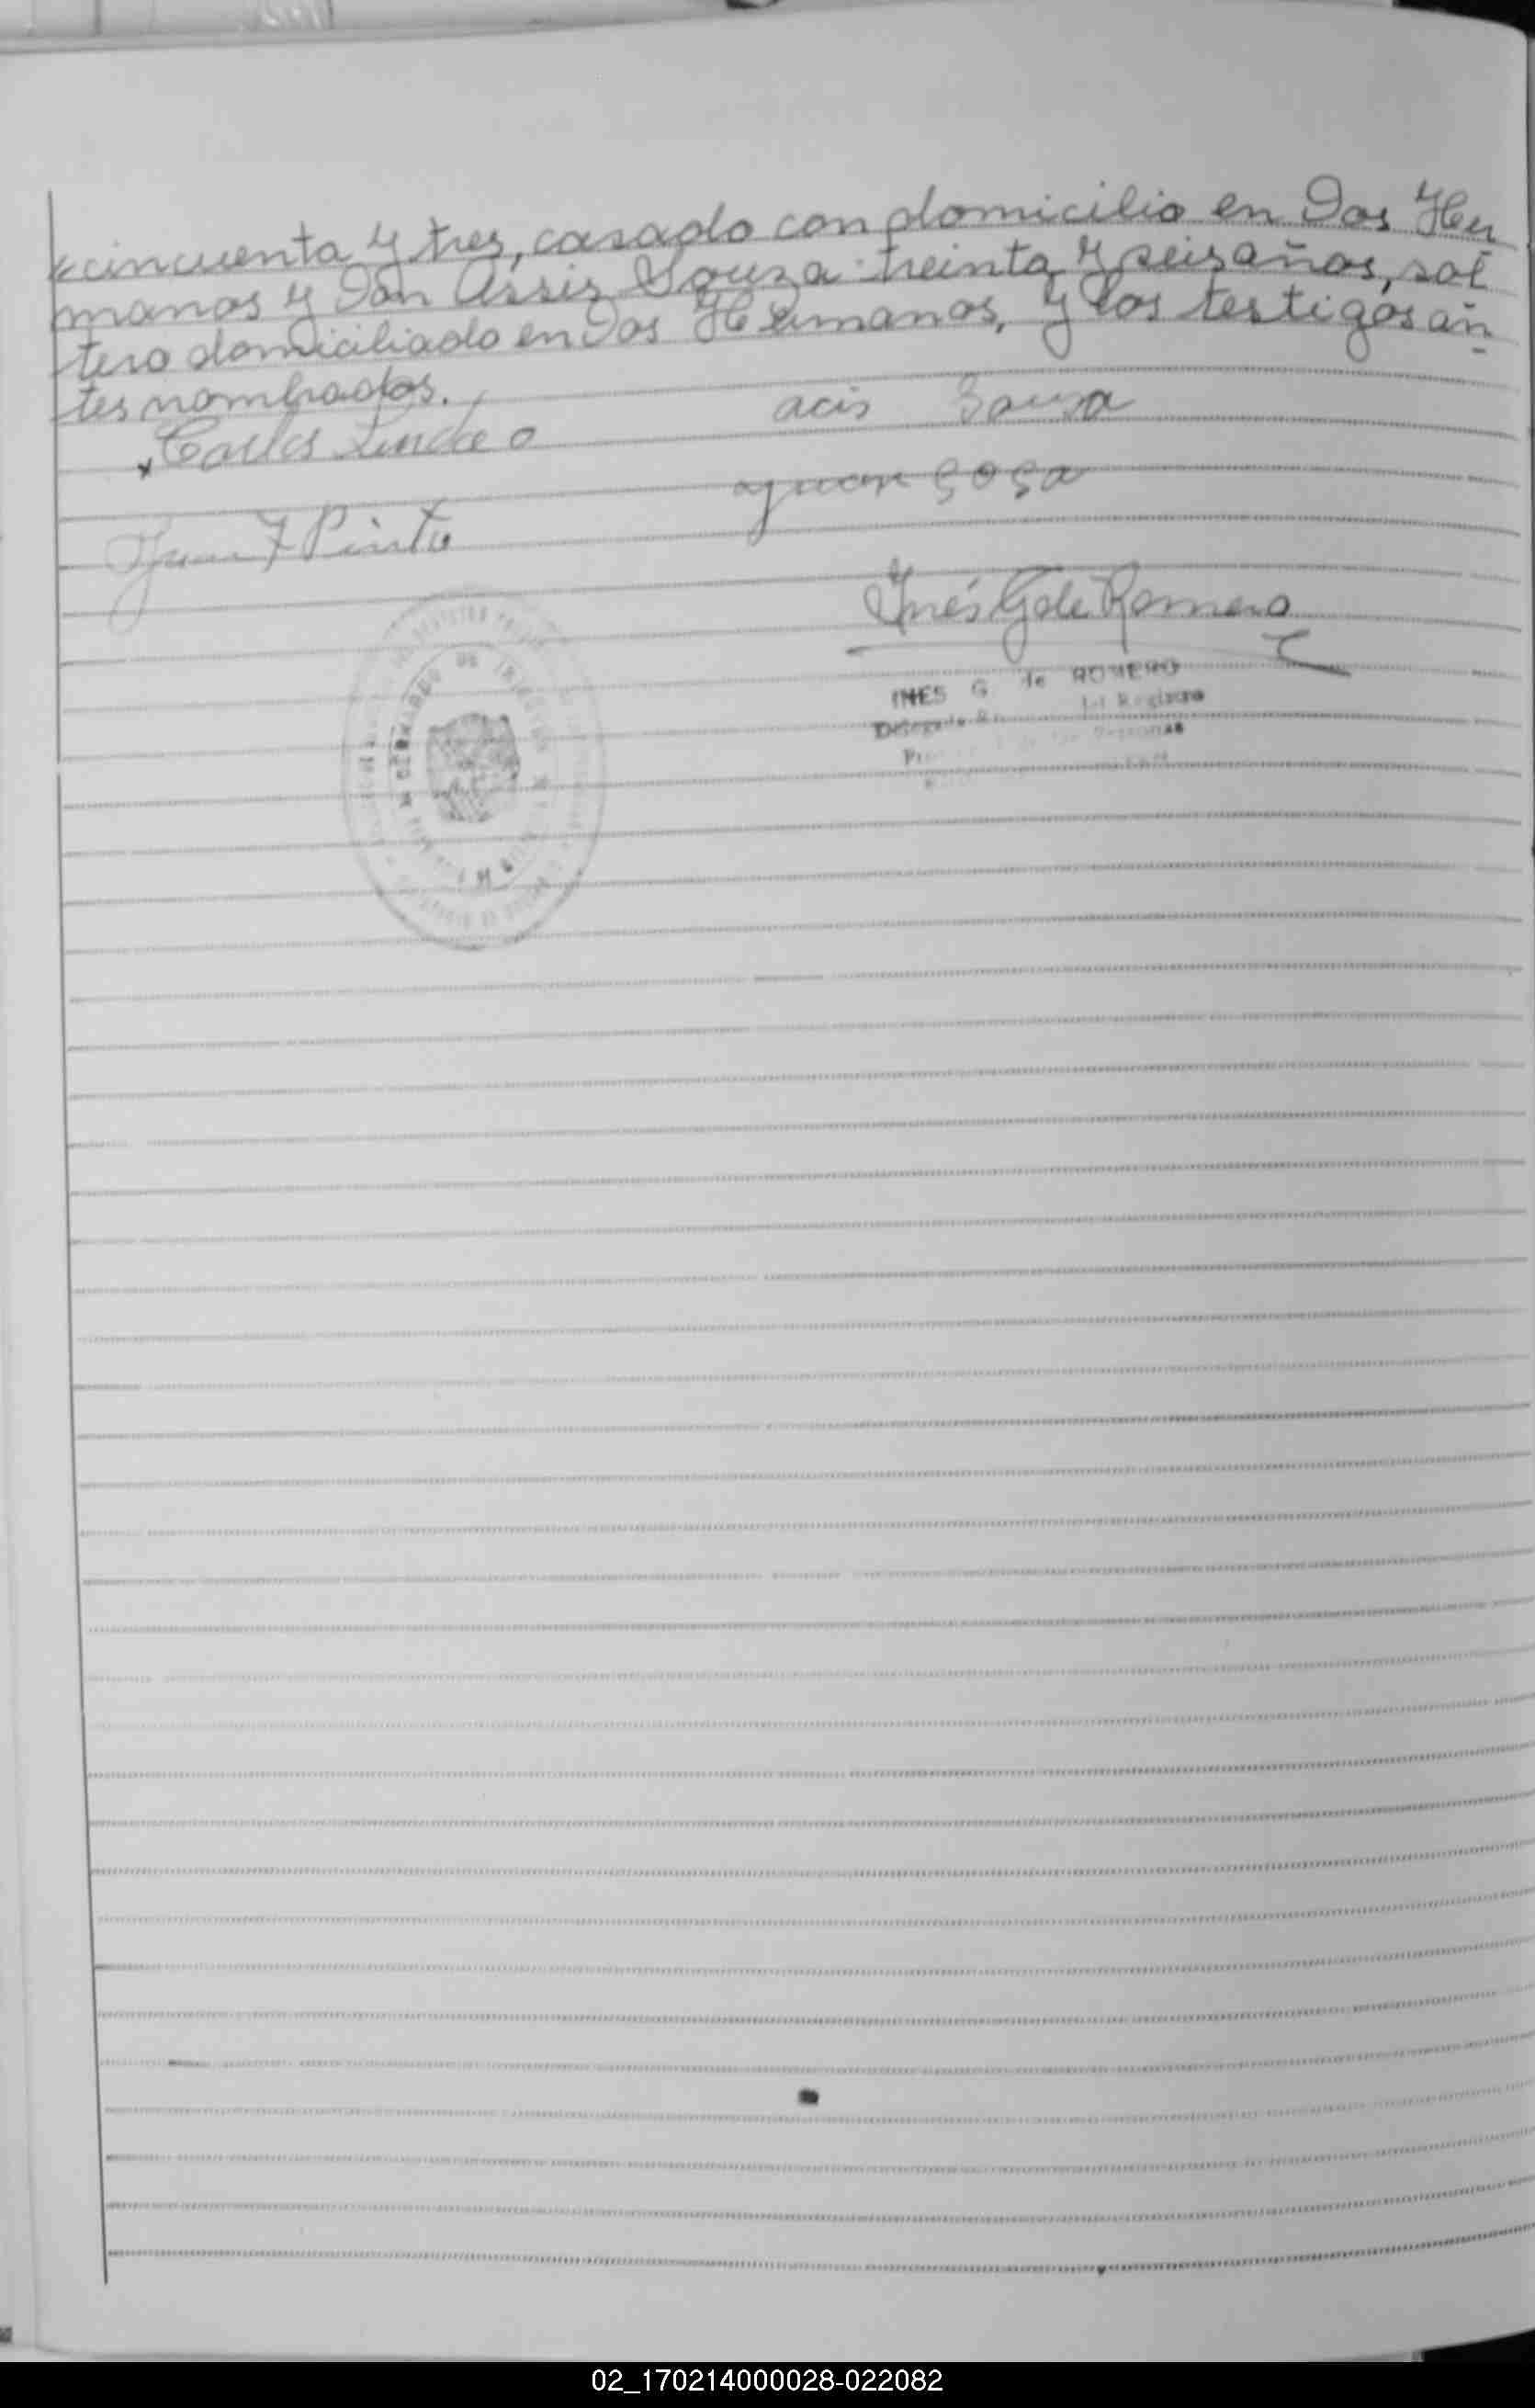 cincuenta y tres, casado con domicilio en Dos Her
manos y Don Assis Souza treinta y seis años, sol
tero domiciliado en Dos Hermanos, y los testigos an
tes nombrados.
acis Souza
Carlos
sosa
Juan F Pinto
Inés G de Romero
INES G. de ROMERO
Registro
02_170214000028-022082